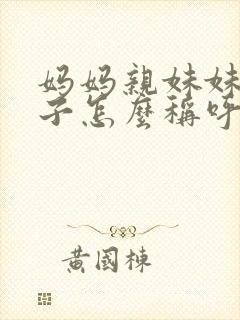 妈妈親妹妹
子怎麼稱呼
黄國棟